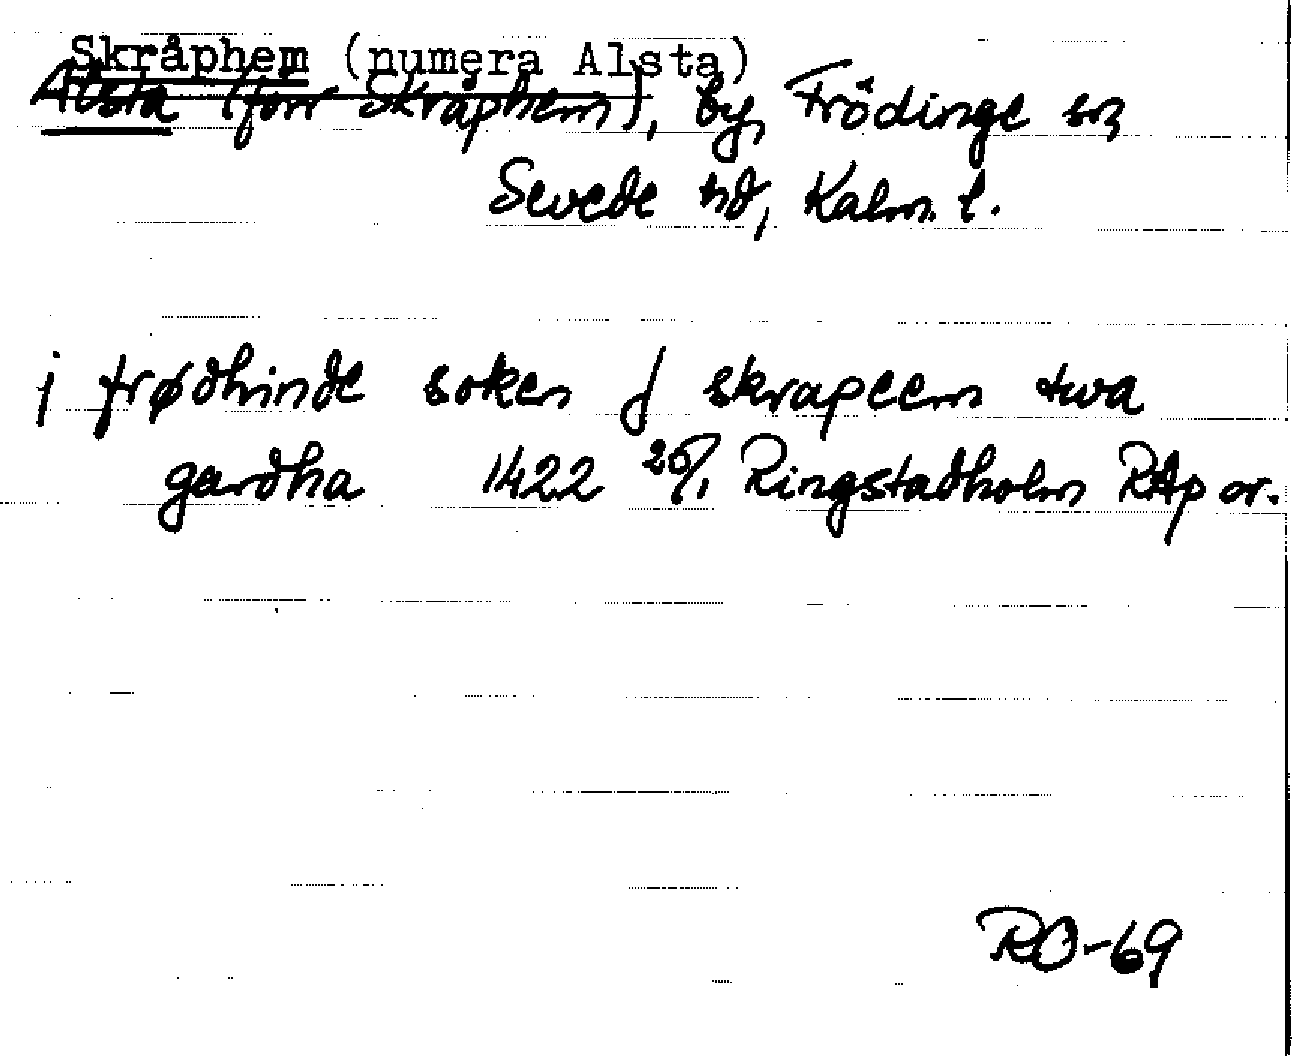 Skråphem (numera Alsta)
Alsta (förr Skråphem), by, Frödinge sn
Sevede hd, Kalm. l.
j frødhinde soken j skrapeem twa
gardha 1422 26/1 Ringstadholm RAp or.
RO-69